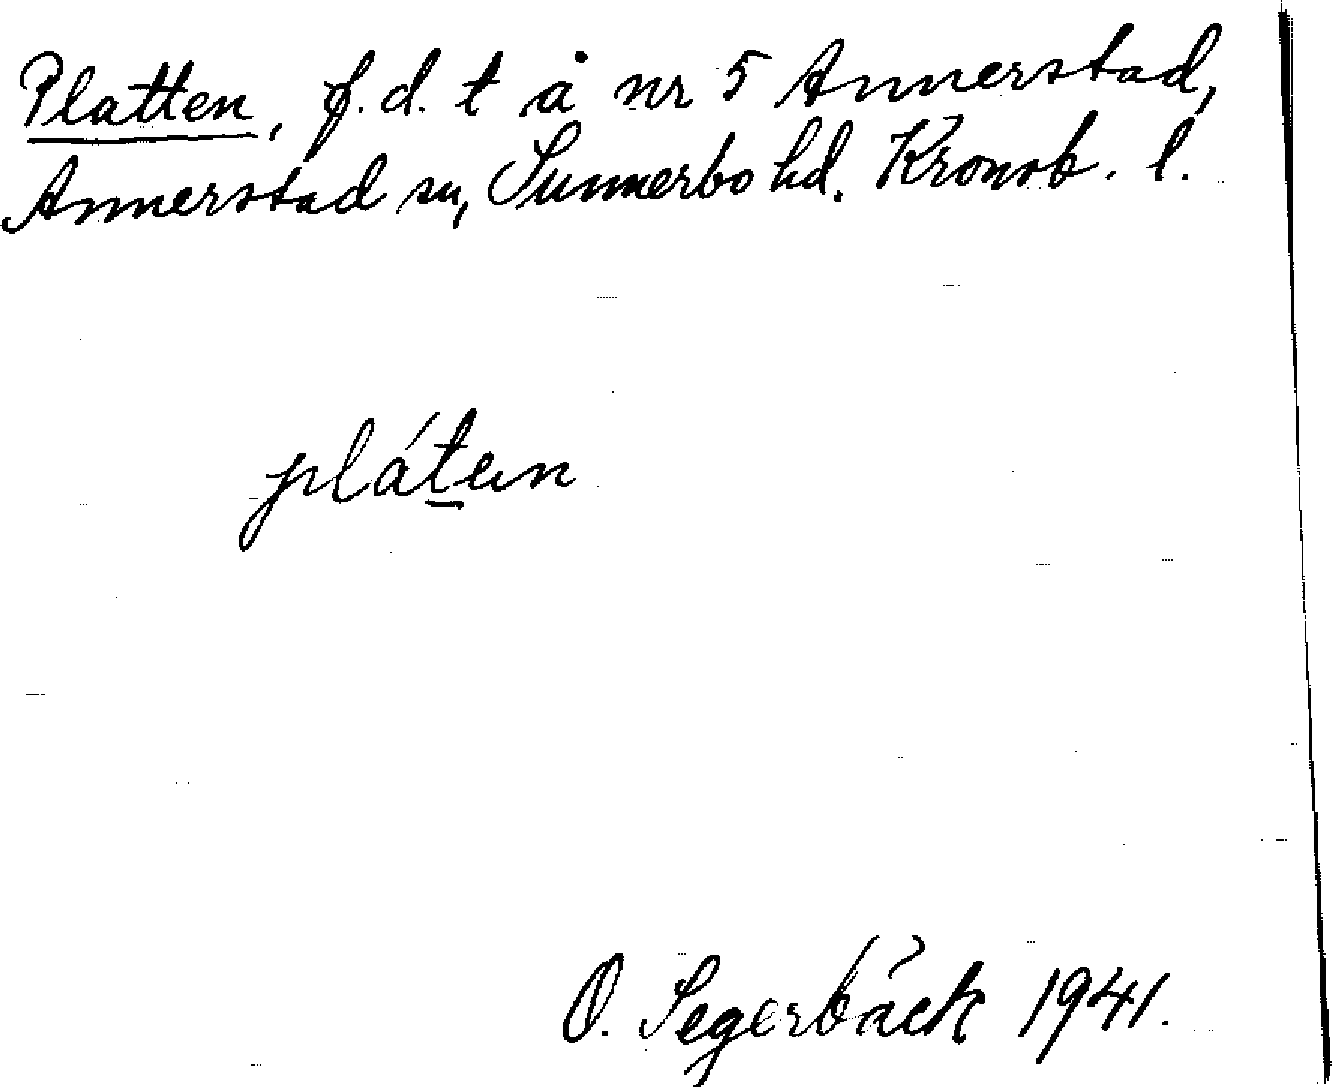 Platten, f.d. t å nr 5 Annerstad,
Annerstad sn, Sunnerbo hd. Kronob. l.
pláten
O. Segerbäck 1941.